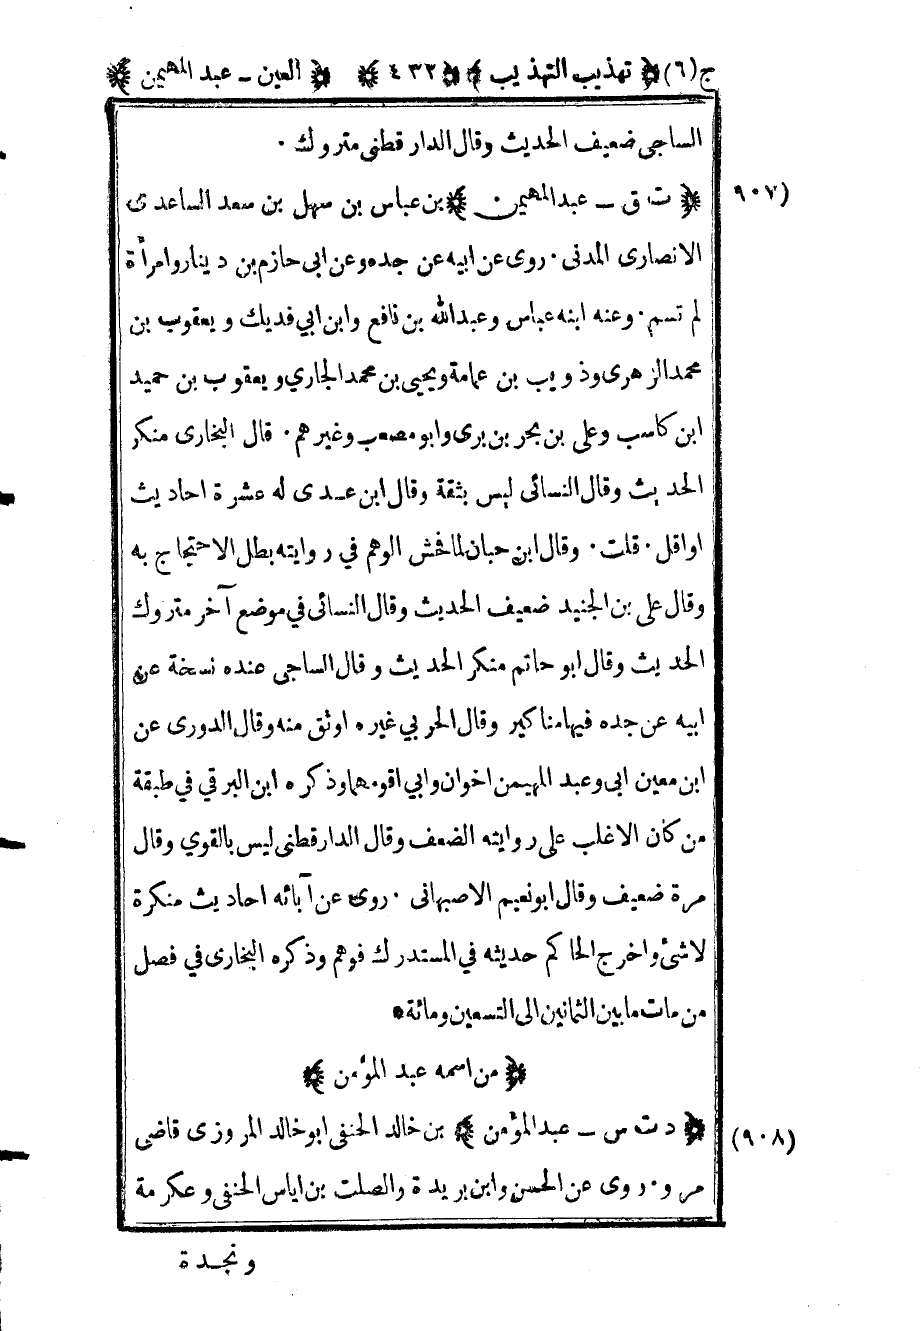 ج(٦) ﴿ تهذيب التهذيب ﴾ ﴿ ٤٣٢ ﴾ ﴿ العين ـ عبد المهيمن ﴾
الساجى ضعيف الحديث وقال الدار قطنى متروك ٠
٩٠٧) ﴿ ت ق ـ عبد المهيمن ﴾ بن عباس بن سهل بن سعد الساعدى
الانصارى المدنى ٠ روى عن ابيه عن جده وعن ابى حازم بن دينار وامرأة
لم تسم ٠ وعنه ابنه عباس وعبدالله بن نافع وابن ابي فديك ويعقوب بن
محمد الزهرى وذويب بن عمامة ويحيى بن محمد الجاري ويعقوب بن حميد
ابن كاسب وعلى بن بحر بن برى وابو مصعب وغيرهم ٠ قال البخارى منكر
الحديث وقال النسائى ليس بثقة وقال ابن عدى له عشرة احاديث
اواقل ٠ قلت ٠ وقال ابن حبان لما فحش الوهم في روايته بطل الاحتجاج به
وقال على بن الجنيد ضعيف الحديث وقال النسائى في موضع آخر متروك
الحديث وقال ابو حاتم منكر الحديث وقال الساجى عنده نسخة عن
ابيه عن جده فيها مناكير وقال الحربي غيره اوثق منه وقال الدورى عن
ابن معين ابى وعبد المهيمن اخوان وابي اقومهما وذكره ابن البرقي في طبقة
من كان الاغلب على روايته الضعف وقال الدارقطنى ليس بالقوي وقال
مرة ضعيف وقال ابو نعيم الاصبهانى ٠ روى عن آبائه احاديث منكرة
لاشئ واخرج الحاكم حديثه في المستدرك فوهم وذكره البخارى في فصل
من مات ما بين الثمانين الى التسعين ومائة ٠
﴿ من اسمه عبد المؤمن ﴾
(٩٠٨) ﴿ د ت س ـ عبد المؤمن ﴾ بن خالد الحنفى ابو خالد المروزى قاضى
مرو ٠ روى عن الحسن وابن بريدة والصلت بن اياس الحنفى وعكرمة
ونجدة